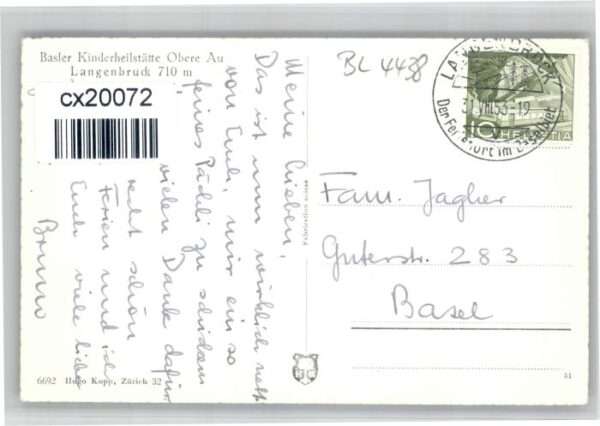 Basler Kinderheilstätte Obere Au
Langenbruck 710 m
cx20072
BL 4438
LANGENBRUCK
31.VIII.53-19
Der Ferienort im Basel
10 HELVETIA
Meine Lieben,
Das ist nun wirklich nett
von Euch, mir ein so
feines Päckli zu schicken
vielen Dank dafür
recht schön
Ferien und ich
Euch viele liebe
Bruno
Fam. Jagher
Güterstr. 283
Basel
6692 Hugo Kopp, Zürich 32
44